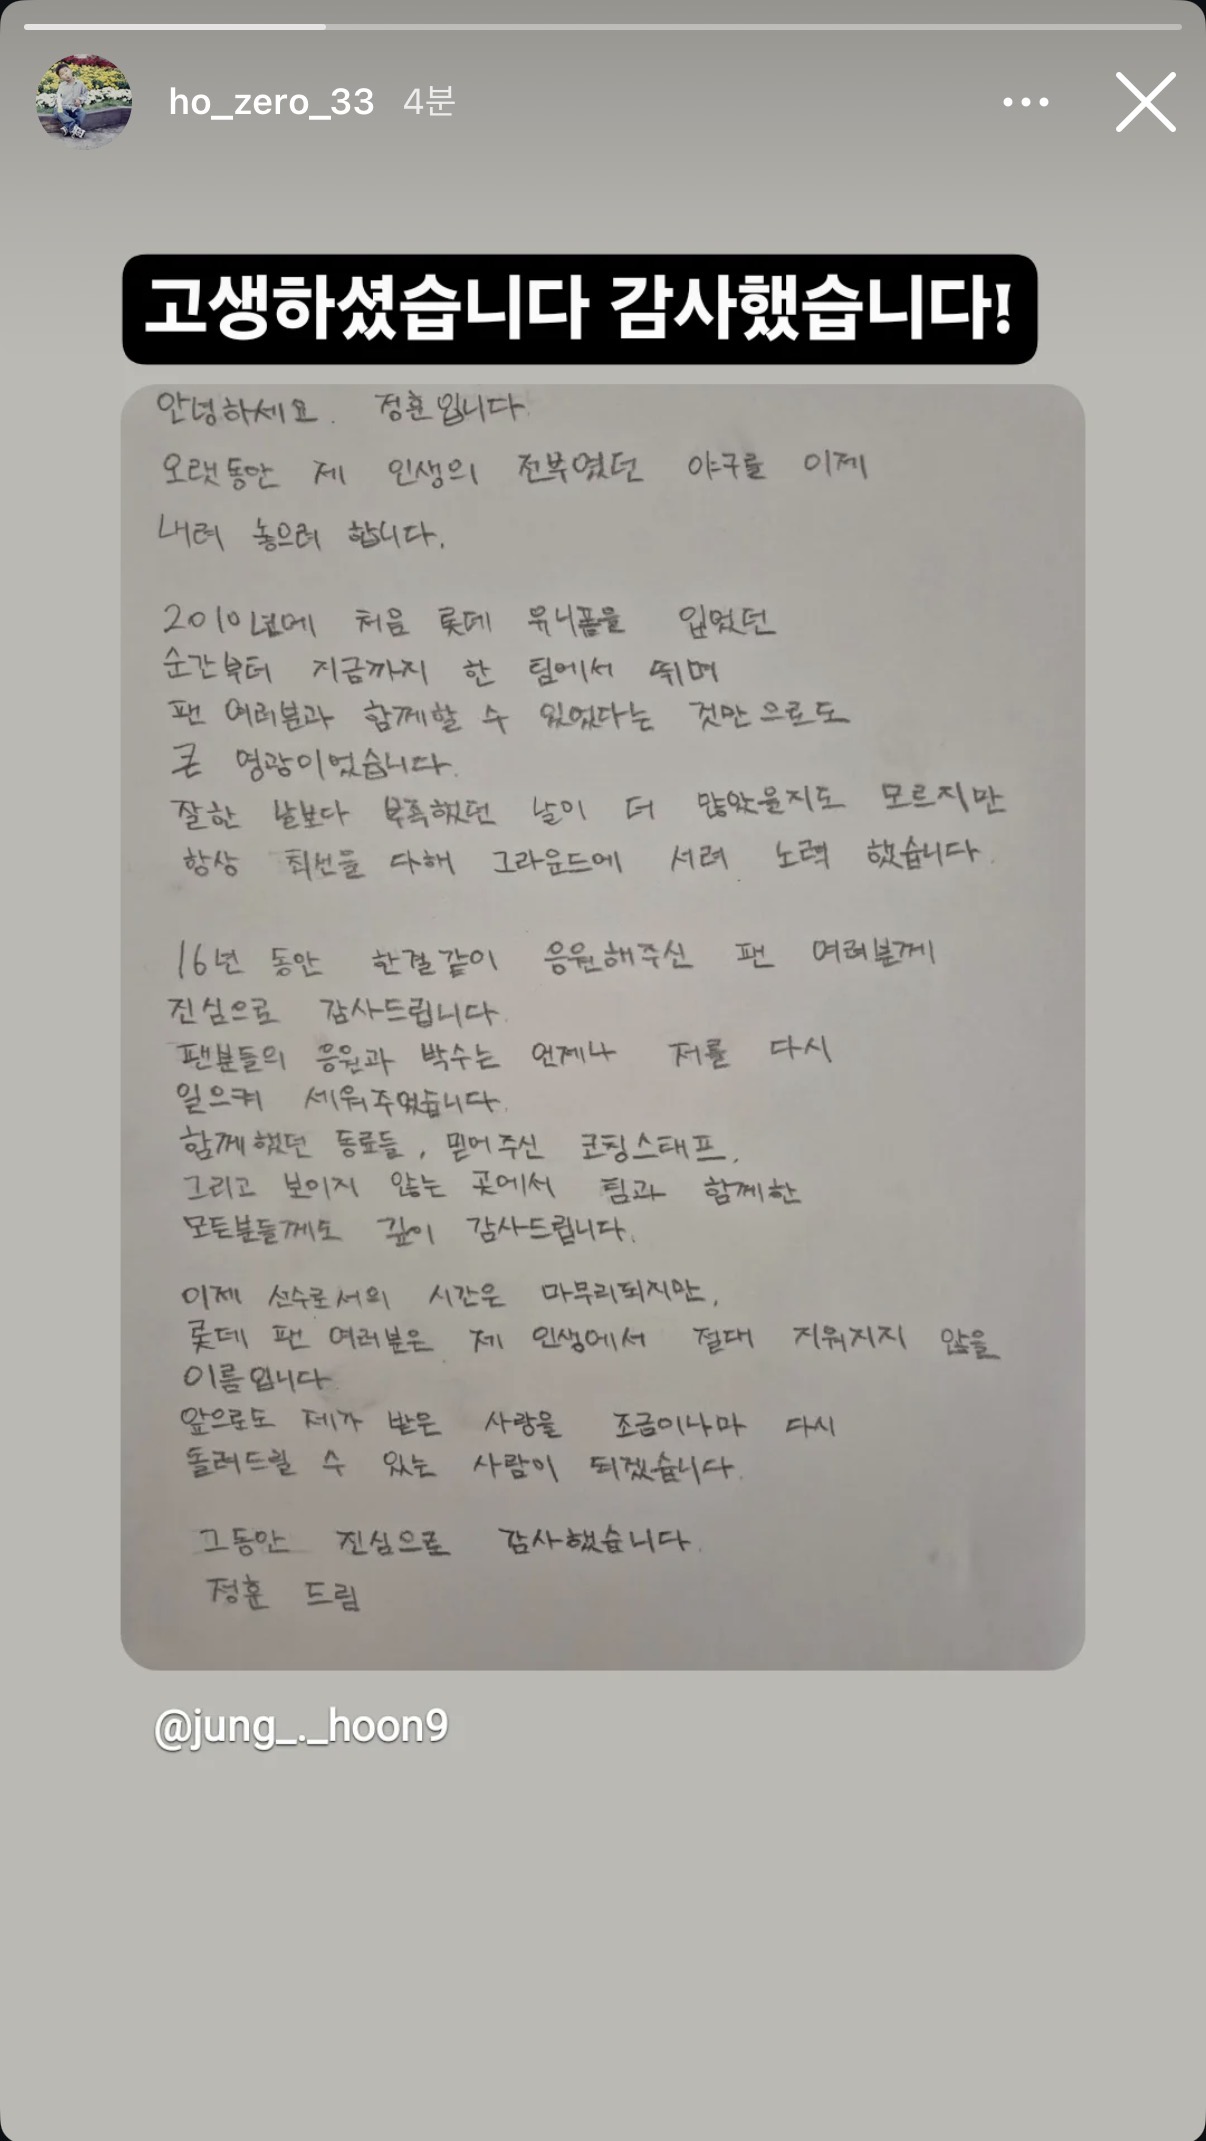 ho_zero_33 4분
고생하셨습니다 감사했습니다!
안녕하세요. 정훈입니다.
오랫동안 제 인생의 전부였던 야구를 이제
내려 놓으려 합니다.
2010년에 처음 롯데 유니폼을 입었던
순간부터 지금까지 한 팀에서 뛰며
팬 여러분과 함께할 수 있었다는 것만으로도
큰 영광이었습니다.
잘한 날보다 부족했던 날이 더 많았을지도 모르지만
항상 최선을 다해 그라운드에 서려 노력 했습니다.
16년 동안 한결같이 응원해주신 팬 여러분께
진심으로 감사드립니다.
팬분들의 응원과 박수는 언제나 저를 다시
일으켜 세워주었습니다.
함께했던 동료들, 믿어주신 코칭스태프,
그리고 보이지 않는 곳에서 팀과 함께한
모든분들께도 깊이 감사드립니다.
이제 선수로서의 시간은 마무리되지만,
롯데 팬 여러분은 제 인생에서 절대 지워지지 않을
이름입니다
앞으로도 제가 받은 사랑을 조금이나마 다시
돌려드릴 수 있는 사람이 되겠습니다.
그동안 진심으로 감사했습니다.
정훈 드림
@jung_._hoon9